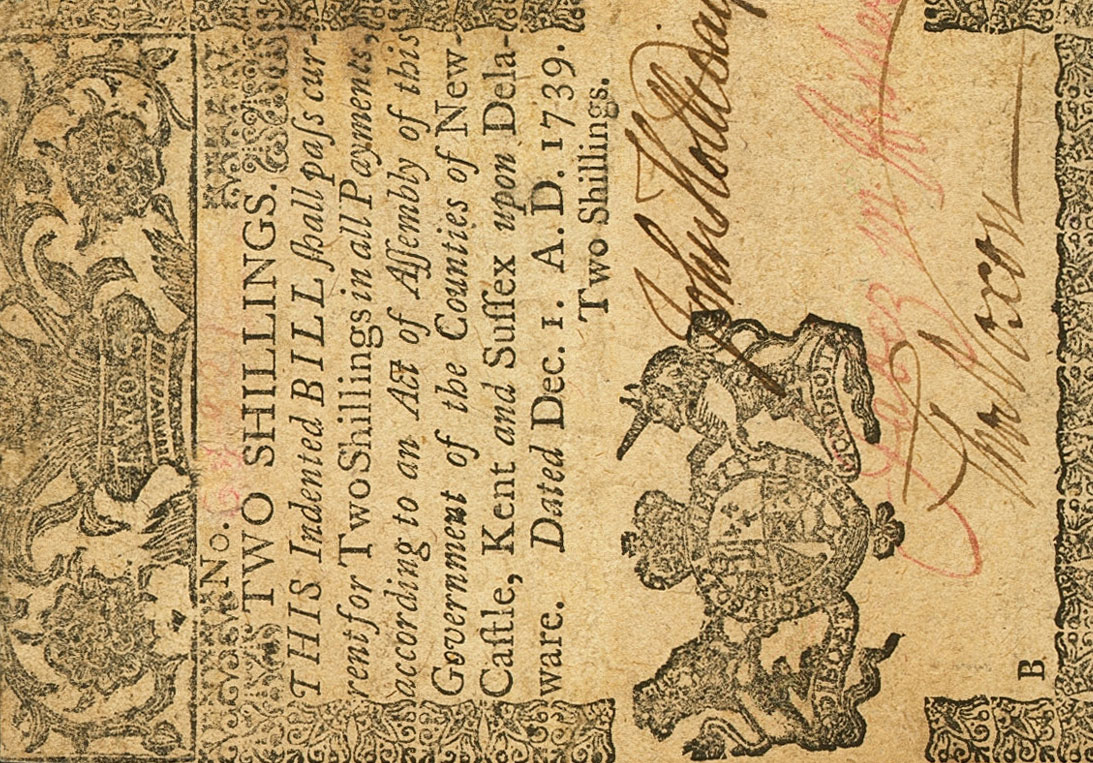 TWO
No.
TWO SHILLINGS.
THIS Indented BILL ſhall paſs cur-
rent for Two Shillings in all Payments,
according to an Act of Aſſembly of this
Government of the Counties of New-
Caſtle, Kent and Suſſex upon Dela-
ware. Dated Dec. 1. A.D. 1739.
Two Shillings.
John
Thos Noxon
B